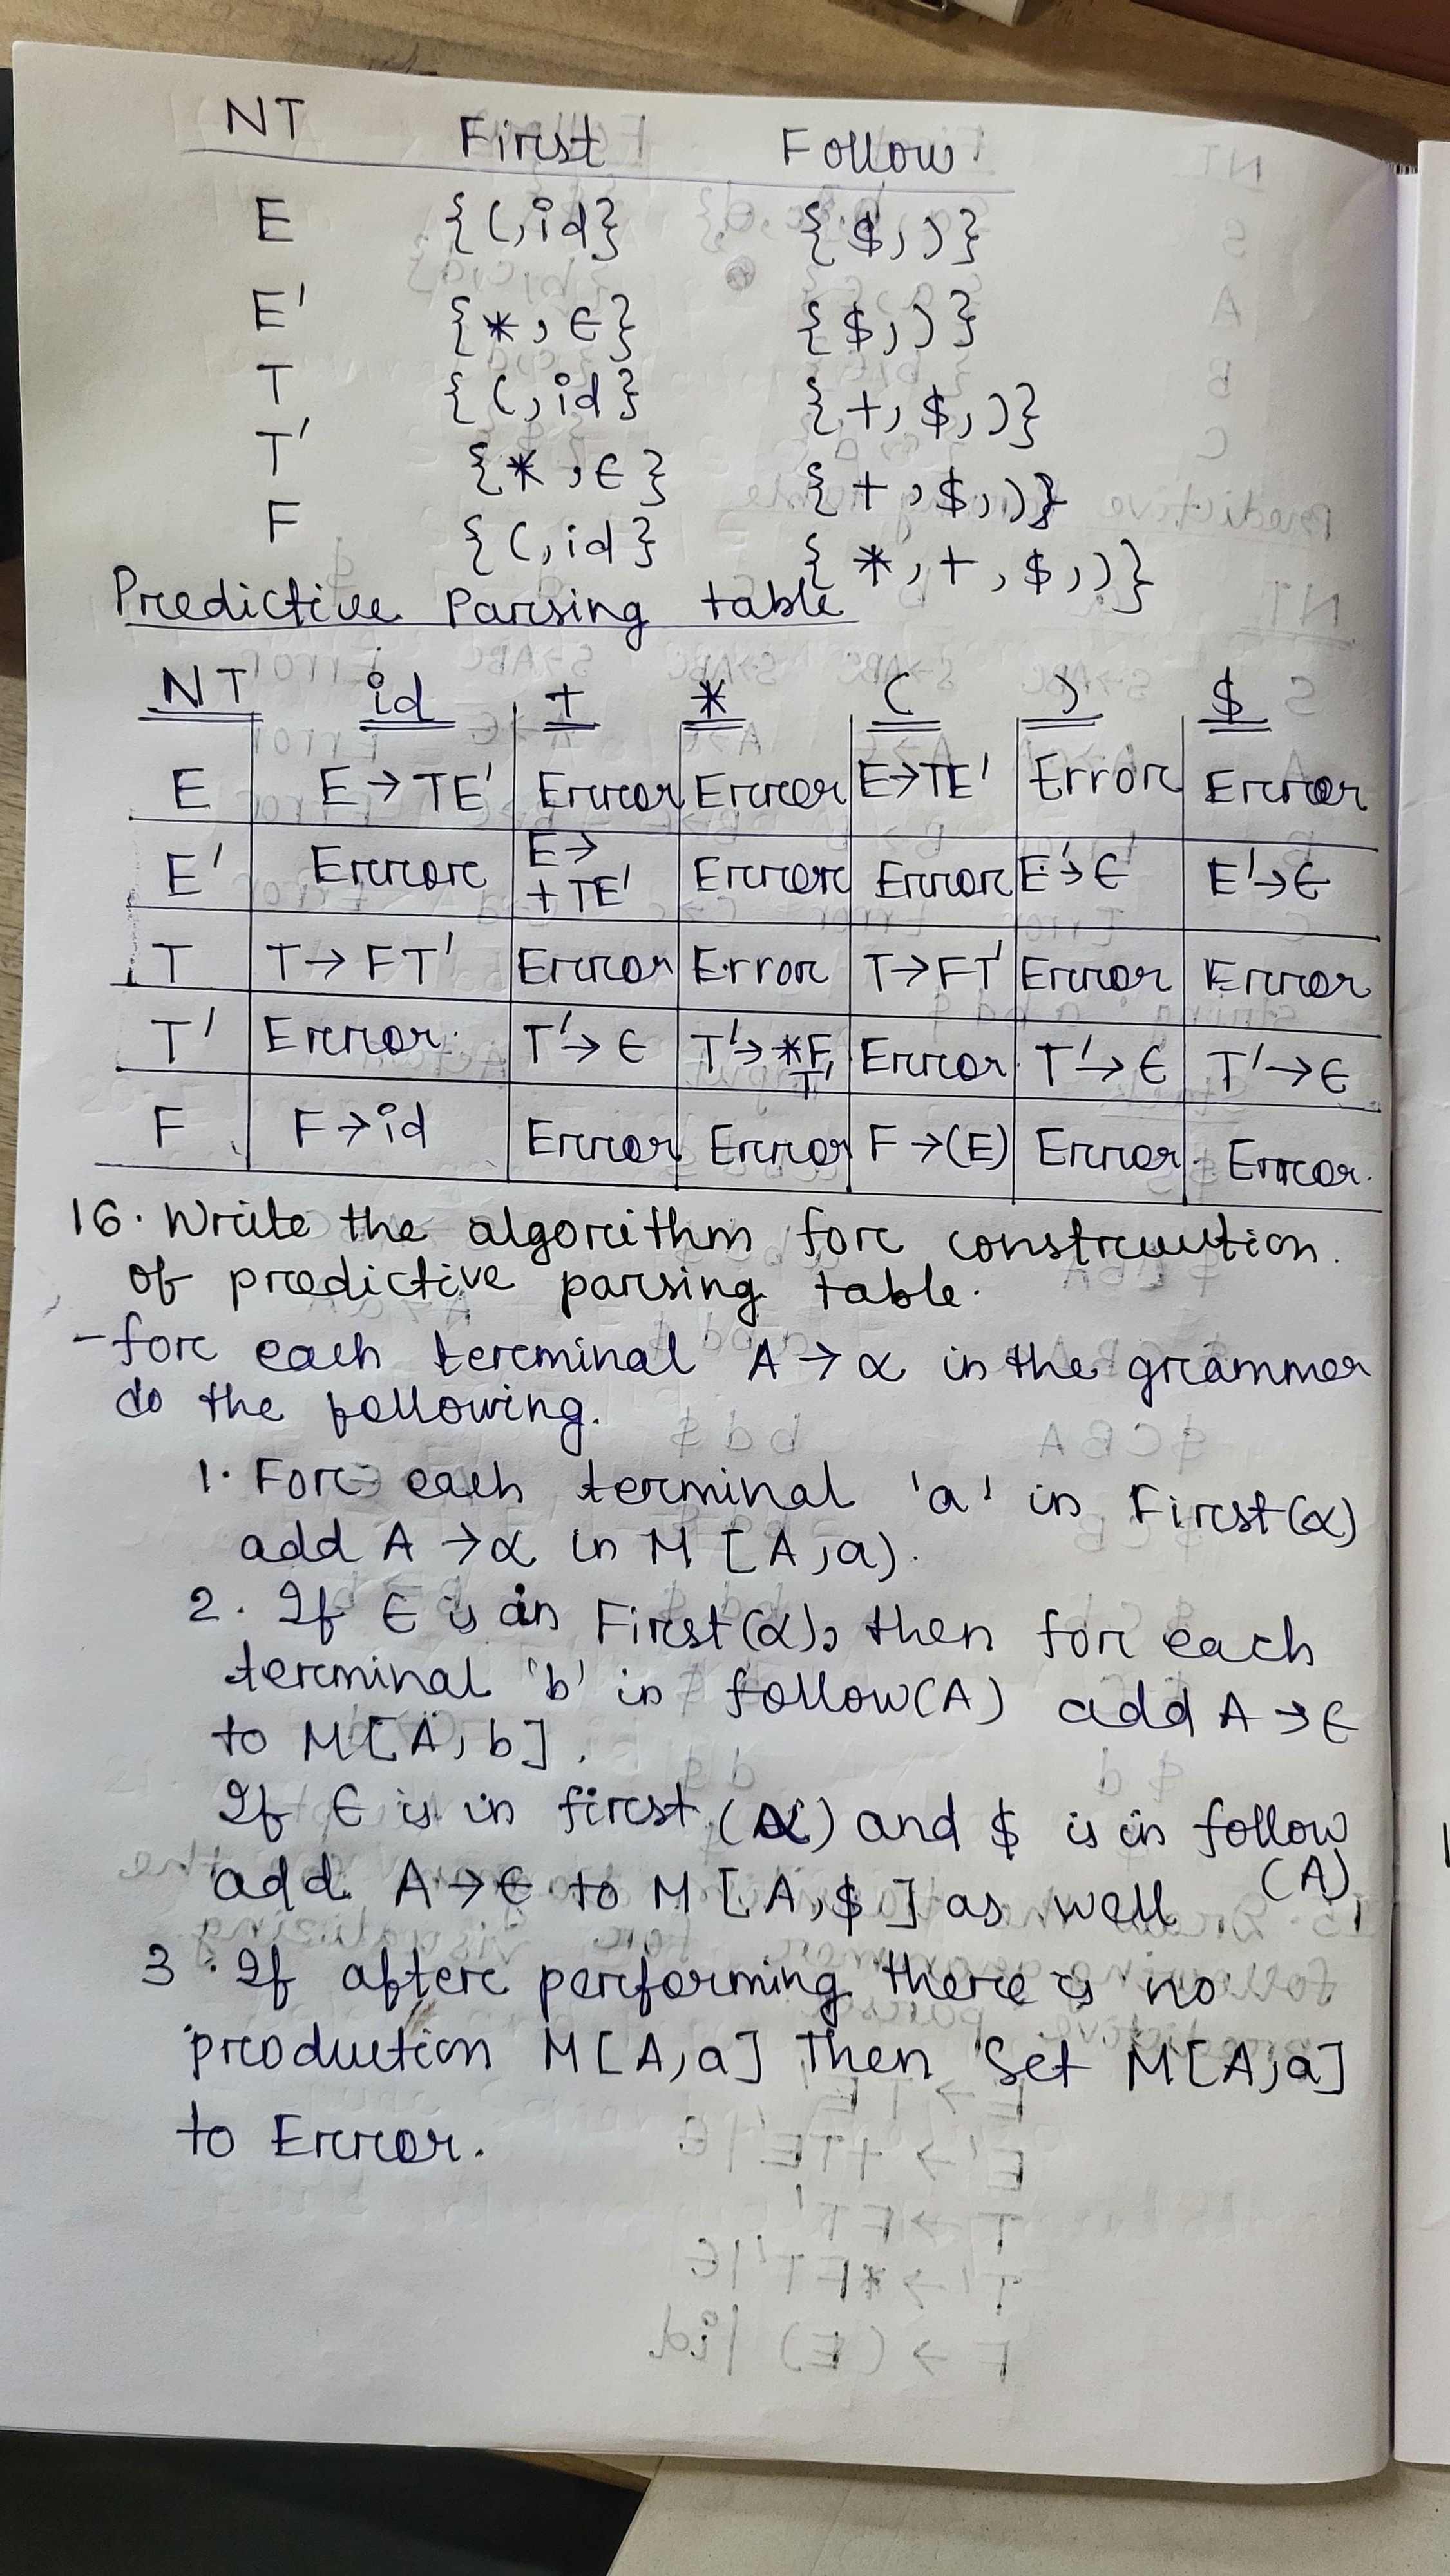 NT First Follow
E {(,id} {$,)}
E' {*,ϵ} {$,)}
T {(,id} {+,$,)}
T' {*,ϵ} {+,$,)}
F {(,id} {*,+,$,)}
Predictive Parsing table
NT id + * ( ) $
E E→TE' Error Error E→TE' Error Error
E' Error E→ +TE' Error Error E'→ϵ E'→ϵ
T T→FT' Error Error T→FT' Error Error
T' Error T'→ϵ T'→*FT' Error T'→ϵ T'→ϵ
F F→id Error Error F→(E) Error Error
16. Write the algorithm for construuction
of predictive parsing table.
- for each terminal A→α in the grammer
do the following.
1. For each terminal 'a' in First(α)
add A→α in M[A,a).
2. If ϵ is in First(α), then for each
terminal 'b' in follow(A) add A→ϵ
to M[A,b].
If ϵ is in first(α) and $ is in follow
(A),
add A→ϵ to M[A,$] as well
3. If after performing there is no
production M[A,a] Then Set M[A,a]
to Error.